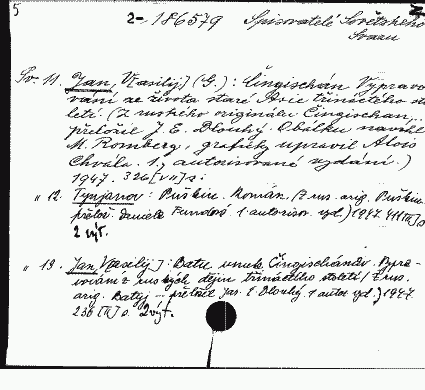 5
2-186579 Spisovatelé Sovětského
Svazu
Sv. 11. Jan, V[asilij] (G.): Čingischán. Vypravo-
vání ze života staré Asie třináctého sto-
letí. (Z ruského originálu Čingischan,..
přeložil J. E. Dlouhý. Obálku navrhl
M. Romberg, graficky upravil Alois
Chvála. 1. autorisované vydání.)
1947. 326 [VII] s.
" 12. Tynjanov: Puškin. Román. (Z rus. orig. Puškin
přelož. 1. autoris. vyd.) 1947. s.
2 výt.
" 13. Jan, V[asilij]: Batu vnuk Čingischánův. Vyprá-
vování z ruských dějin třináctého století. (Z rus.
orig. Batyj - přeložil Jar. E. Dlouhý. 1. autor. vyd.) 1947.
236 [II] s. 2 výt.